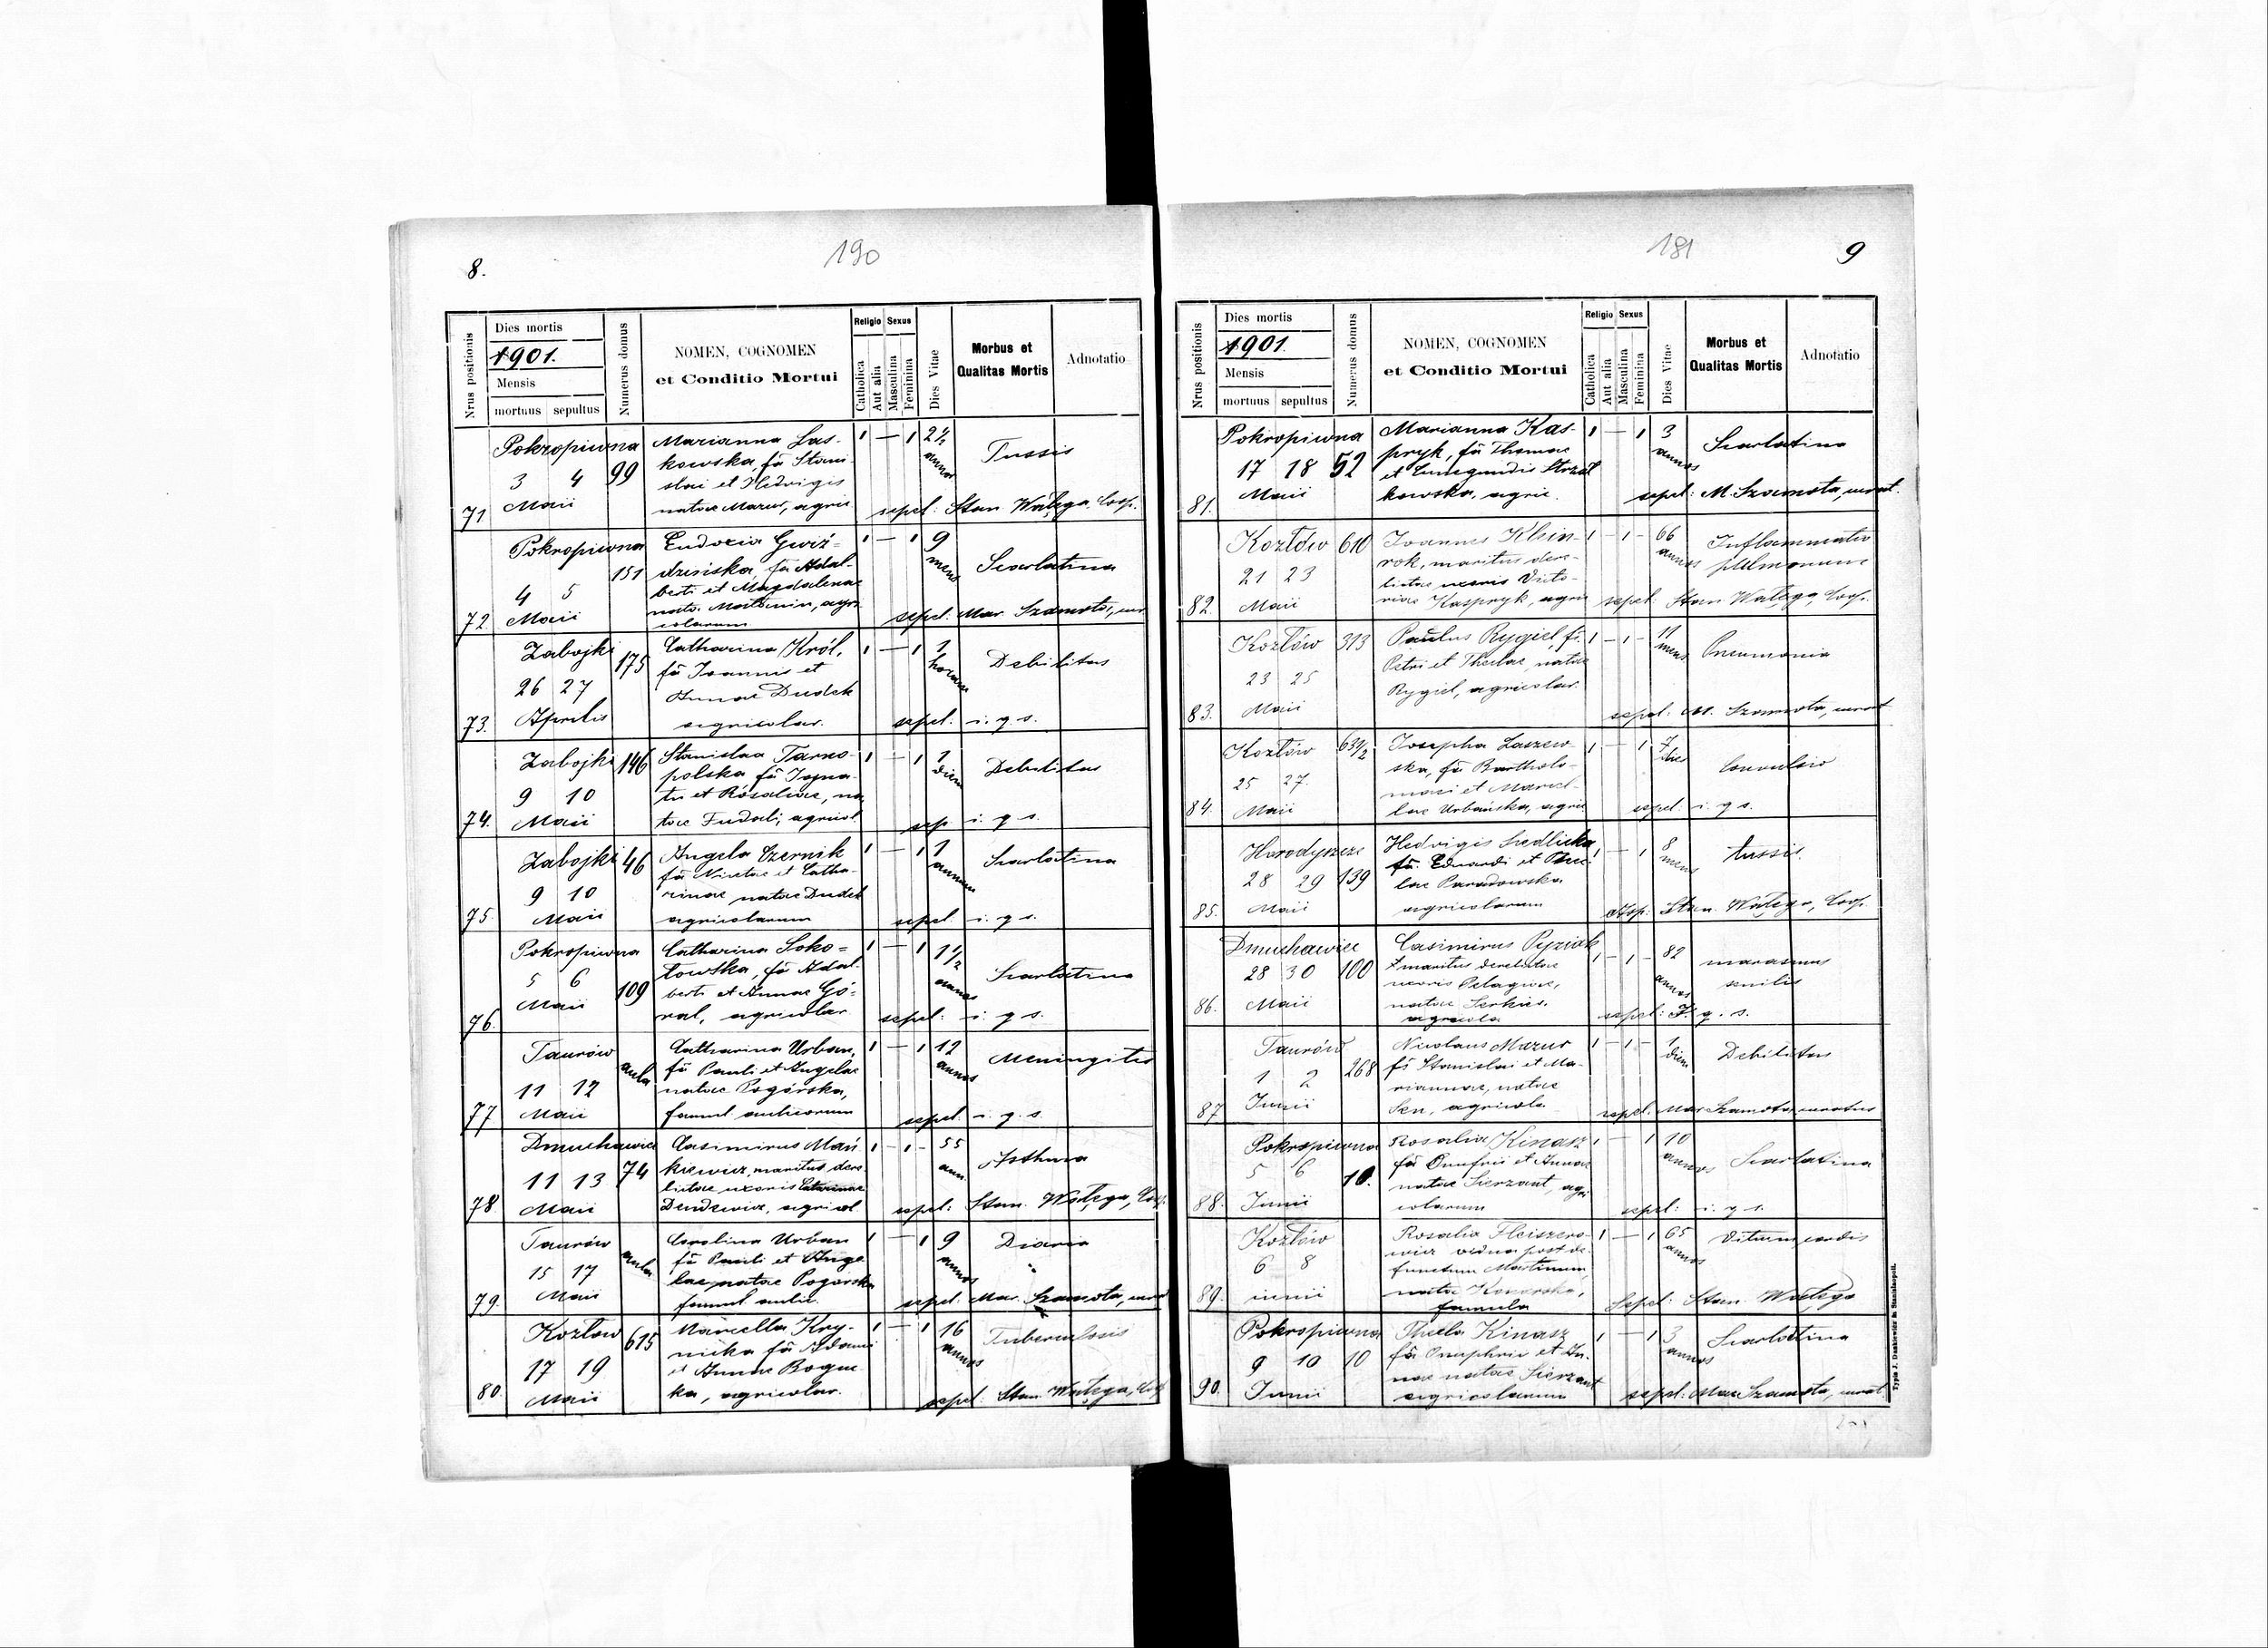 8.
190
Nrus positionis
Dies mortis
1901.
Mensis
mortuus sepultus
Numerus domus
NOMEN, COGNOMEN
et Conditio Mortui
Religio Sexus
Catholica
Aut alia
Masculina
Feminina
Dies Vitae
Morbus et
Qualitas Mortis
Adnotatio
71
Pokropiwna
3 4 99
Maii
Marianna Las-
kowska, fa Stani-
slai et Hedvigis
natae Mazur, agric
1 — 1 2½
annos
Tussis
sepel: Stan. Wałęga, Coop.
72.
Pokropiwna
151
4 5
Maii
Eudoxia Gwiź-
fa Adal-
berti et Magdalenae
natae agri
colarum
1 — 1 9
mens
Scarlatina
sepel. Mar. Szamota, cur
73.
Zabojki
175
26 27
Aprilis
Catharina Król,
fa Joannis et
Annae Dudek
agricolar.
1 — 1 1
horam
Debilitas
sepel. i. q s.
74.
Zabojki 146
9 10
Maii
Stanislaa Tarno-
polska fa Igna-
tii et Rosaliae, na
tae Fudali, agricol.
1 — 1 1
diem
Debilitas
sep i. q s.
75.
Zabojki 46
9 10
Maii
Angela Czernik
fa Nicetae et Catha-
rinae natae Dudek
agricolarum
1 — 1 1
annum
Scarlatina
sepel. i. q s.
76.
Pokropiwna
5 6
109
Maii
Catharina Soko=
łowska, fa Adal-
berti et Annae Gó-
ral, agricolar
1 — 1 1½
annos
Scarlatina
sepel: i. q s.
77
Taurów
aula
11 12
Maii
Catharina Urban,
fa Pauli et Angelae
natae Pogórska,
famul aulicorum
1 — 1 12
annos
Meningitis
sepel. i. q. s
78.
Dmuchawiec
11 13 74
Maii
Casimirus Mań
kiewicz, maritus dere
lictae uxoris Catarinae
agricol
1 — 1 - 55
ann.
Asthma
sepel: Stan. Wałęga, Coop.
79.
Taurów
aula
15 17
Maii
Carolina Urban
fa Pauli et Ange
lae natae Pogorska
famul aulic.
1 — 1 9
annos
Diaria
sepel. Mar. Szamota, curat
80.
Kozłow 615
17 19
Maii
Marcella Kry-
nicka fa Adami
et Annae Boguc
ka, agricolar.
1 — 1 16
annos
Tuberculosis
sepel Stan. Wałęga, Coop
181
9
Nrus positionis
Dies mortis
1901.
Mensis
mortuus sepultus
Numerus domus
NOMEN, COGNOMEN
et Conditio Mortui
Religio Sexus
Catholica
Aut alia
Masculina
Feminina
Dies Vitae
Morbus et
Qualitas Mortis
Adnotatio
81.
Pokropiwna
17 18 52
Maii
Marianna Kas-
pryk, fa Thomae
et Cunegundis Strzał
kowska, agric.
1 — 1 3
annos
Scarlatina
sepel: M. Szamota, curat.
82.
Kozłów 610
21 23
Maii
Joannes Klein-
rok, maritus dere-
lictae uxoris Victo-
riae Kaspryk, agric
1 — 1 — 66
annos
Inflammatio
pulmonum
sepel: Stan Wałęga, Coop.
83.
Kozłów 313
23 25
Maii
Paulus Rygiel, fi.
Petri et Theclae, natae
Rygiel, agricolar.
1 — 1 — 11
mens
Pneumonia
sepel: M. Szamota, curat
84.
Kozłów 631/2
25 27.
Maii
Josepha Laszew-
ska, fa Bartholo-
maei et Marcel-
lae Urbańska, agric
1 — 1 7
dies
Convulsio
sepel. i. q s.
85.
Horodyszcze
28 29 139
Maii
Hedvigis Siedlicka
fa. Eduardi et
lae Paradowska
agricolarum
1 — 1 8
mens
tussis.
Stan. Wałęga, Coop.
86.
Dmuchawiec
28 30 100
Maii
Casimirus Pyziak
maritus derelictae
uxoris Pelagiae,
natae Serkies.
agricola
1 — 1 — 82
annos
marasmus
senilis
sepel: i. q. s.
87
Taurów
268
1 2
Junii
Nicolaus Mazur
fi Stanislai et Ma-
riannae, natae
Sen, agricola
1 — 1 — 1
diem
Debilitas
sepel. Mar Szamota, curatus
88.
Pokropiwna
5 6
10.
Junii
Rosalia Kinasz
fa Onufrii et Annae
natae Sierzant, agri
colarum
1 — 1 10
annos
Scarlatina
sepel: i. q s.
89.
Kozłów
6 8
iunii
Rosalia Fleiszero-
wicz vidua post de-
functum Martinum,
nata Konarska,
famula
1 — 1 65
annos
Vitium cordis
Sepel: Stan. Wałęga
90.
Pokropiwna
9 10 10
Junii
Thecla Kinasz
fa Onuphrii et An-
nae natae Sierzant
agricolarum
1 — 1 3
annos
Scarlatina
sepel: Mar Szamota, curat.
Typis J. Dankiewicz in Stanislaopoli.